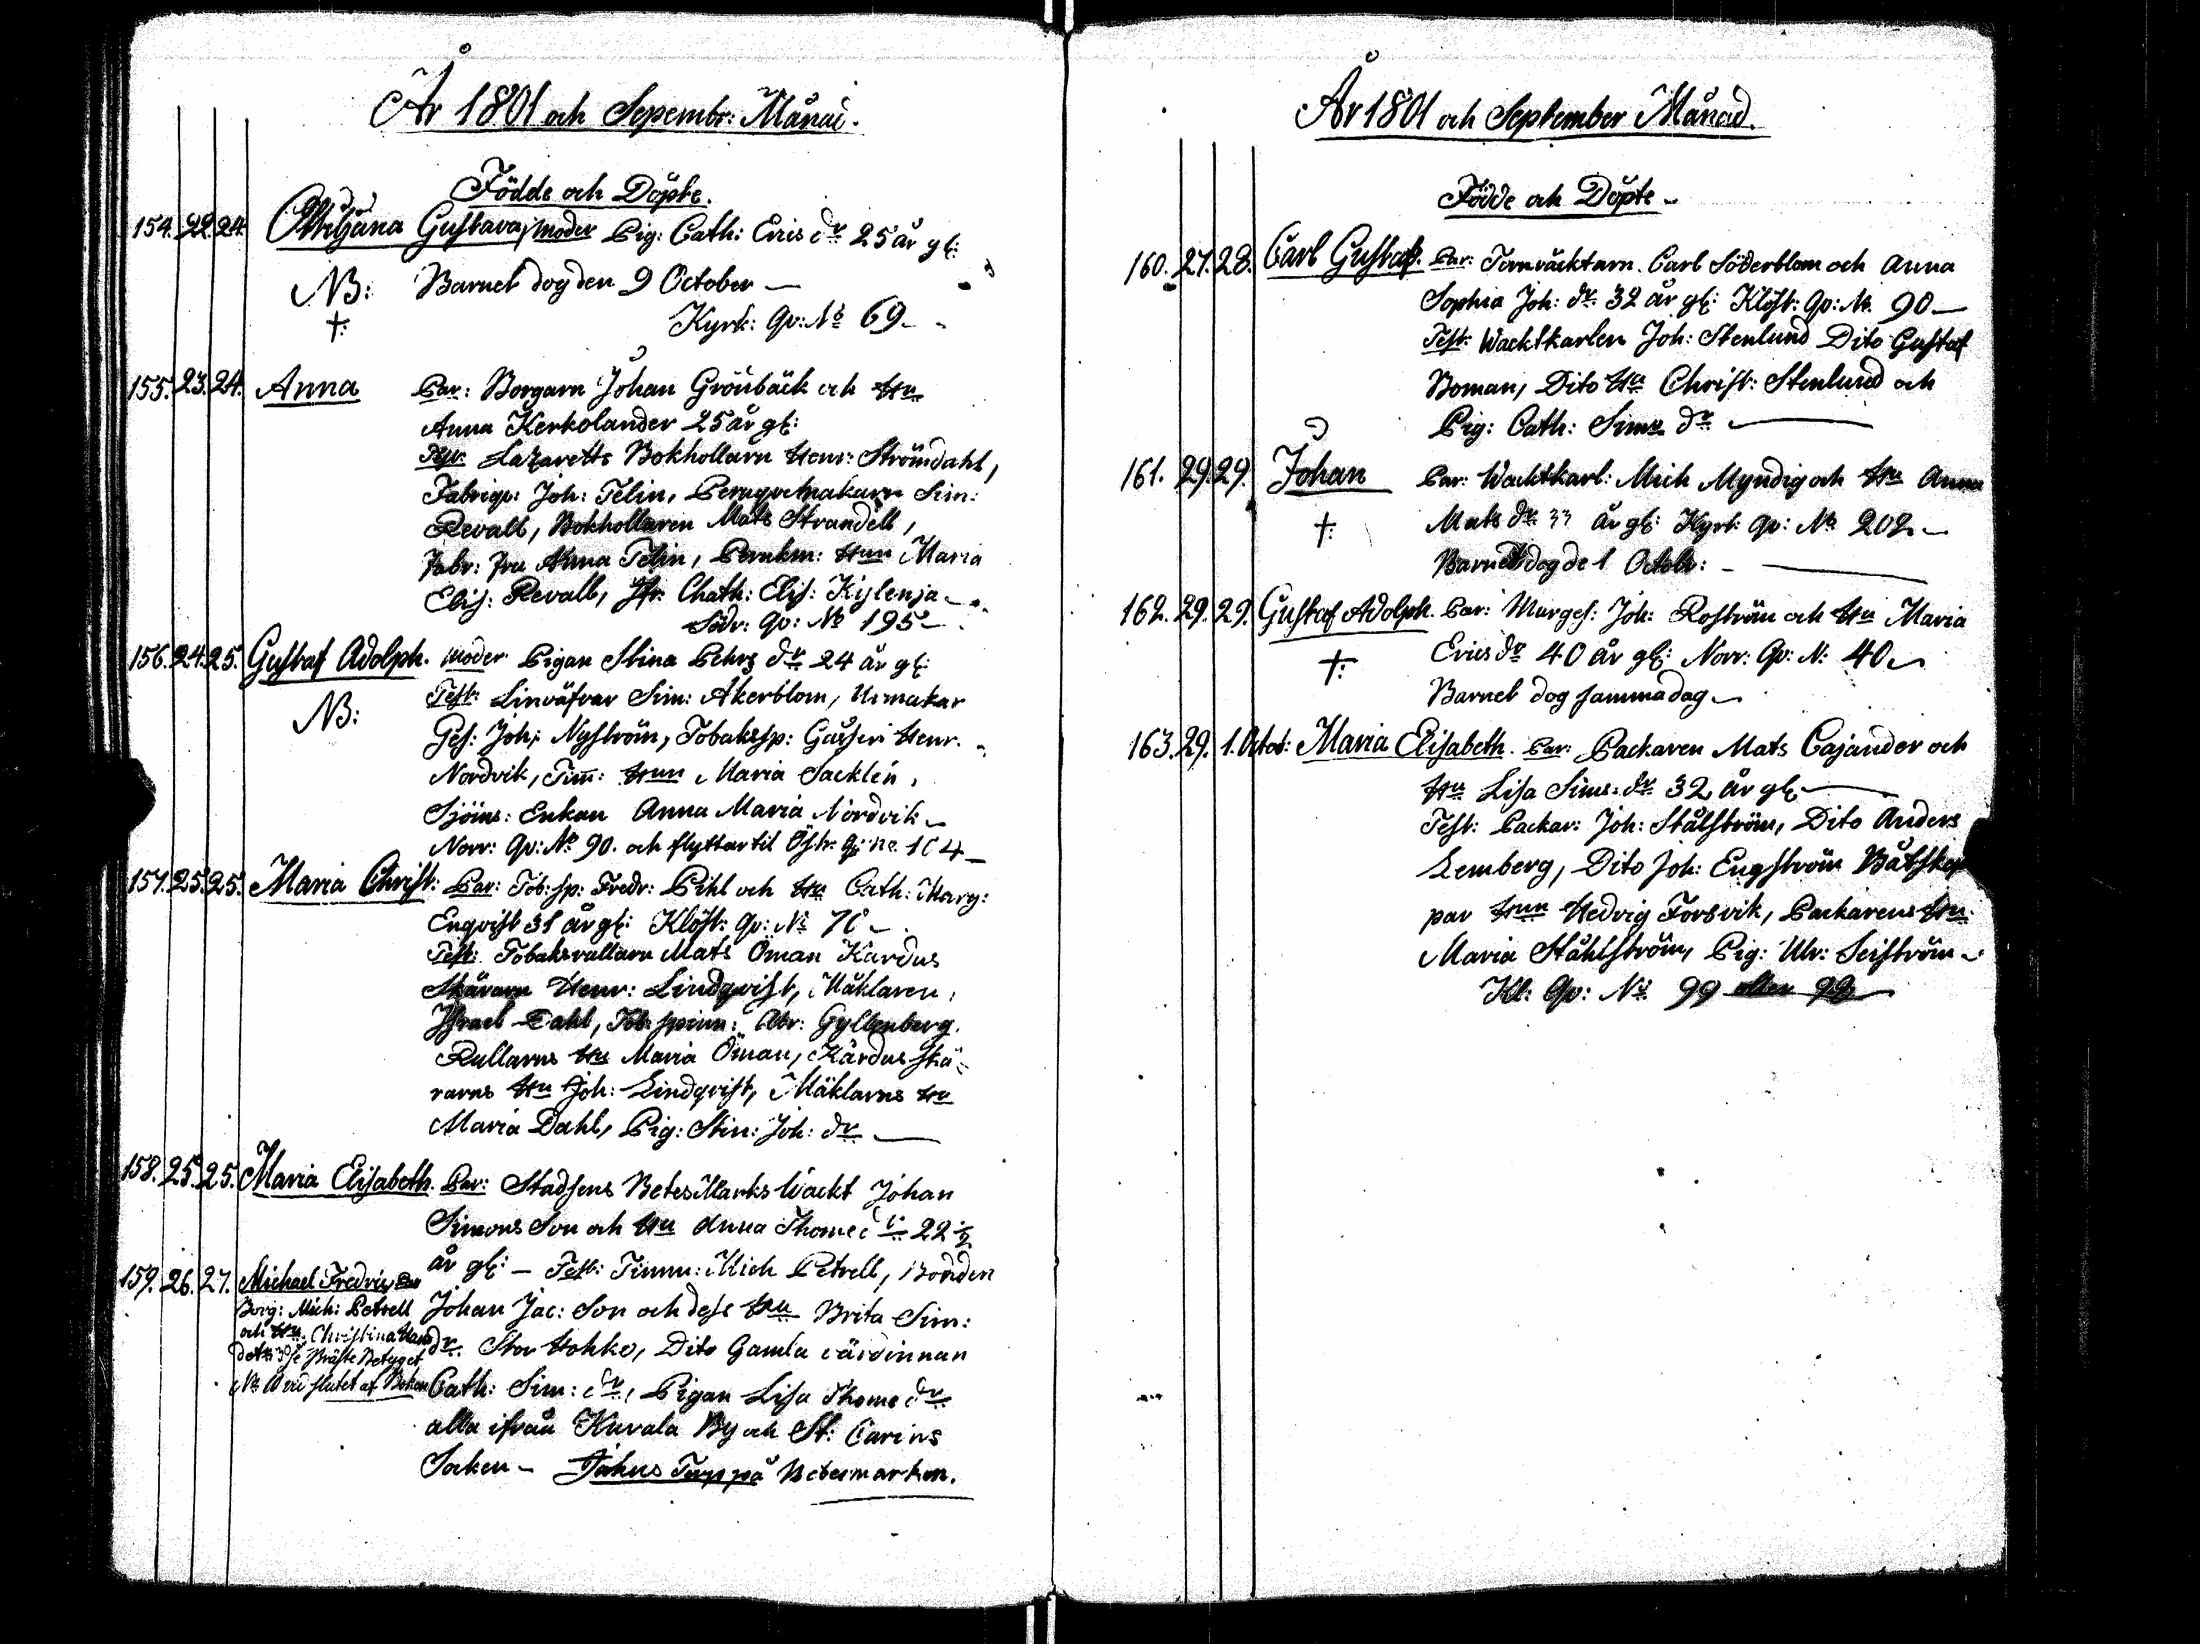 År 1801 och Sepembr: Månad.
Födde och Döpte.
154. 22. 24. Ottiljana Gustava, moder Pig: Cath: Erics dr 25 år gl:
NB: Barnet dog den 9 October —
†: Kyrk: Qv: No 69 -
155. 23. 24. Anna Par: Borgarn Johan Grönbäck och Hu
Anna Kerkolander 25 år gl:
Test: Lazaretts Bokhollarn Henr: Ströindahl,
Fabriqv: Joh: Telin, Peruqvemakarn Sim:
Revall, Bokhollaren Mats Strandell,
Fabr: Fru Anna Telin, Perukm: Hun Maria
Elis: Revall, Jfr: Chath: Elis: Kylenja -
Södr: Qv: No 195 -
156. 24. 25. Gustaf Adolph. Moder Pigan Stina Pehrs dr 24 år gl:
NB: Test: Linväfvar Sim: Åkerblom, Urmakar
Ges: Joh: Nyström, Tobakssp: Gässen Henr.
Nordvik, Tim: Hun Maria Sacklén,
Sjöins: Enkan Anna Maria Nordvik -
Norr: Qv: No 90. och flyttar til Östr: Qv: no 104 -
157. 25. 25. Maria Christ: Par: Tob: sp: Fredr: Pihl och Hu Cath: Marg:
Enqvist 31 år gl: Klöst: Qv: No 76 -
Test: Tobaksrullarn Mats Öman Kardus
Skärarn Henr: Lindqvist, Mäklaren,
Jsrael Dahl, Tob: spinn: Abr: Gyllenberg.
Rullarns Hu Maria Öman, Kardus skä-
rarns Hu Joh: Lindqvist, Mäklarns Hu
Maria Dahl, Pig: Stin: Joh: dr —
158. 25. 25. Maria Elisabeth. Par: Stadsens BetesMarks Wackt Johan
Simons Son och Hu Anna Thome dr 22 ½
år gl: — Test: Timm: Mich Petrell, Bonden
159. 26. 27. Michael Fredric, Par
Borg: Mich: Petrell
och Hu Christina
Johan Jac: Son och dess Hu Brita Sim:
dr. Stor Hohko, Dito Gamla värdinnan
Cath: Sim: dr, Pigan Lisa Thome dr
alla ifrån Kurala By och St: Carins
Socken - Johns Torp på Betesmarken.
År 1801 och September Månad.
Födde och Döpte -
160. 27. 28. Carl Gustaf. Par: Tornväcktarn. Carl Söderblom och Anna
Sophia Joh: dr 32 år gl: Klöst: Qv: No. 90 —
Test: Wacktkarlen Joh: Stenlund Dito Gustaf
Boman, Dito Hu Christ: Stenlund och
Pig: Cath: Sims dr —
161. 29. 29. Johan Par: Wacktkarl: Mich Myndig och Hu Anna
†: Mats dr 33 år gl: Kyrk: Qv: No 202 -
Barnet dog de 1 Octobr: - —
162. 29. 29. Gustaf Adolph. Par: Murges: Joh: Roström och Hu Maria
†: Erics dr 40 år gl: Norr: Qv: N: 40 -
Barnet dog samma dag -
163. 29. 1. Octob: Maria Elisabeth. Par: Packaren Mats Cajander och
Hu Lisa Sims: dr 32 år gl: —
Test: Packar: Joh: Stålström, Dito Anders
Lemberg, Dito Joh: Engström Båtskep
par Hun Hedvig Forsvik, Packarens Hu
Maria Ståhlström, Pig: Ulr: Seiström -
Kl: Qv: No 99 eller 98